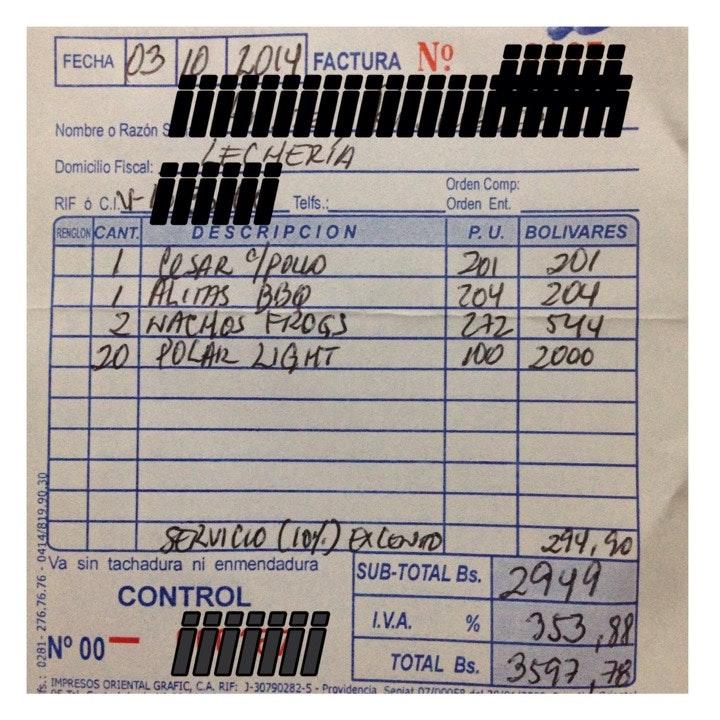 FECHA 03 10 2014 FACTURA Nº
Nombre o Razón S
Domicilio Fiscal: LECHERÍA
RIF ó C.I. V- Telfs.: Orden Comp:
Orden Ent.
RENGLON CANT. DESCRIPCION P. U. BOLIVARES
1 CESAR C/POLLO 201 201
1 ALITAS BBQ 204 204
2 NACHOS FROGS 272 544
20 POLAR LIGHT 100 2000
SERVICIO (10%) EXCENTO 294,90
Va sin tachadura ni enmendadura
SUB-TOTAL Bs. 2949
CONTROL
I.V.A. % 353,88
Nº 00
TOTAL Bs. 3597,78
IMPRESOS ORIENTAL GRAFIC, C.A. RIF: J-30790282-5 - Providencia
s.: 0281- 276.76.76 - 0414/819.90.30